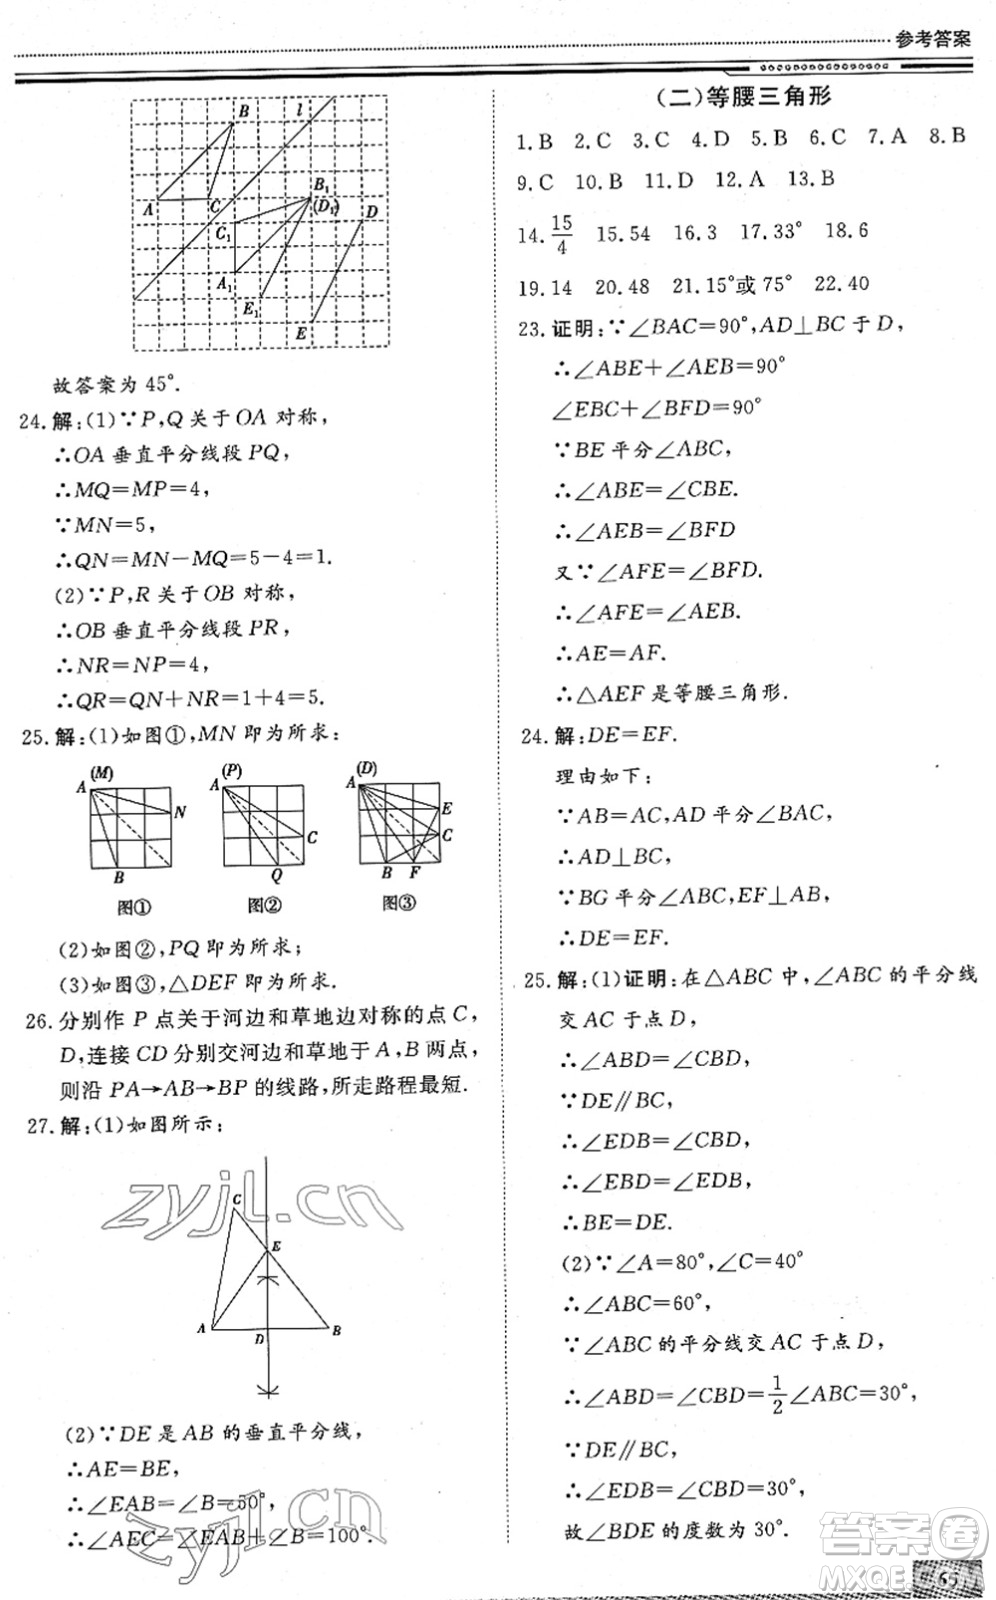 参考答案
B
l
A
C
B₁
(D₁)
D
C₁
A₁
E₁
E
故答案为 45°.
24.解:(1)∵P,Q 关于 OA 对称,
∴OA 垂直平分线段 PQ,
∴MQ=MP=4,
∵MN=5,
∴QN=MN-MQ=5-4=1.
(2)∵P,R 关于 OB 对称,
∴OB 垂直平分线段 PR,
∴NR=NP=4,
∴QR=QN+NR=1+4=5.
25.解:(1)如图①,MN 即为所求:
(M)
A
N
B
图①
(P)
A
C
Q
图②
(D)
A
E
C
B
F
图③
(2)如图②,PQ 即为所求;
(3)如图③,△DEF 即为所求.
26.分别作 P 点关于河边和草地边对称的点 C,
D,连接 CD 分别交河边和草地于 A,B 两点,
则沿 PA→AB→BP 的线路,所走路程最短.
27.解:(1)如图所示:
zyjl.cn
C
E
A
D
B
(2)∵DE 是 AB 的垂直平分线,
∴AE=BE,
∴∠EAB=∠B=50°,
∴∠AEC=∠EAB+∠B=100°.
zyjl.cn
(二)等腰三角形
1.B 2.C 3.C 4.D 5.B 6.C 7.A 8.B
9.C 10.B 11.D 12.A 13.B
14.15/4 15.54 16.3 17.33° 18.6
19.14 20.48 21.15°或 75° 22.40
23.证明:∵∠BAC=90°,AD⊥BC 于 D,
∴∠ABE+∠AEB=90°
∠EBC+∠BFD=90°
∵BE 平分∠ABC,
∴∠ABE=∠CBE.
∴∠AEB=∠BFD
又∵∠AFE=∠BFD.
∴∠AFE=∠AEB.
∴AE=AF.
∴△AEF 是等腰三角形.
24.解:DE=EF.
理由如下:
∵AB=AC,AD 平分∠BAC,
∴AD⊥BC,
∵BG 平分∠ABC,EF⊥AB,
∴DE=EF.
25.解:(1)证明:在△ABC 中,∠ABC 的平分线
交 AC 于点 D,
∴∠ABD=∠CBD,
∵DE∥BC,
∴∠EDB=∠CBD,
∴∠EBD=∠EDB,
∴BE=DE.
(2)∵∠A=80°,∠C=40°
∴∠ABC=60°,
∵∠ABC 的平分线交 AC 于点 D,
∴∠ABD=∠CBD=1/2∠ABC=30°,
∵DE∥BC,
∴∠EDB=∠CBD=30°,
故∠BDE 的度数为 30°.
答案圈
MXQE.COM
65